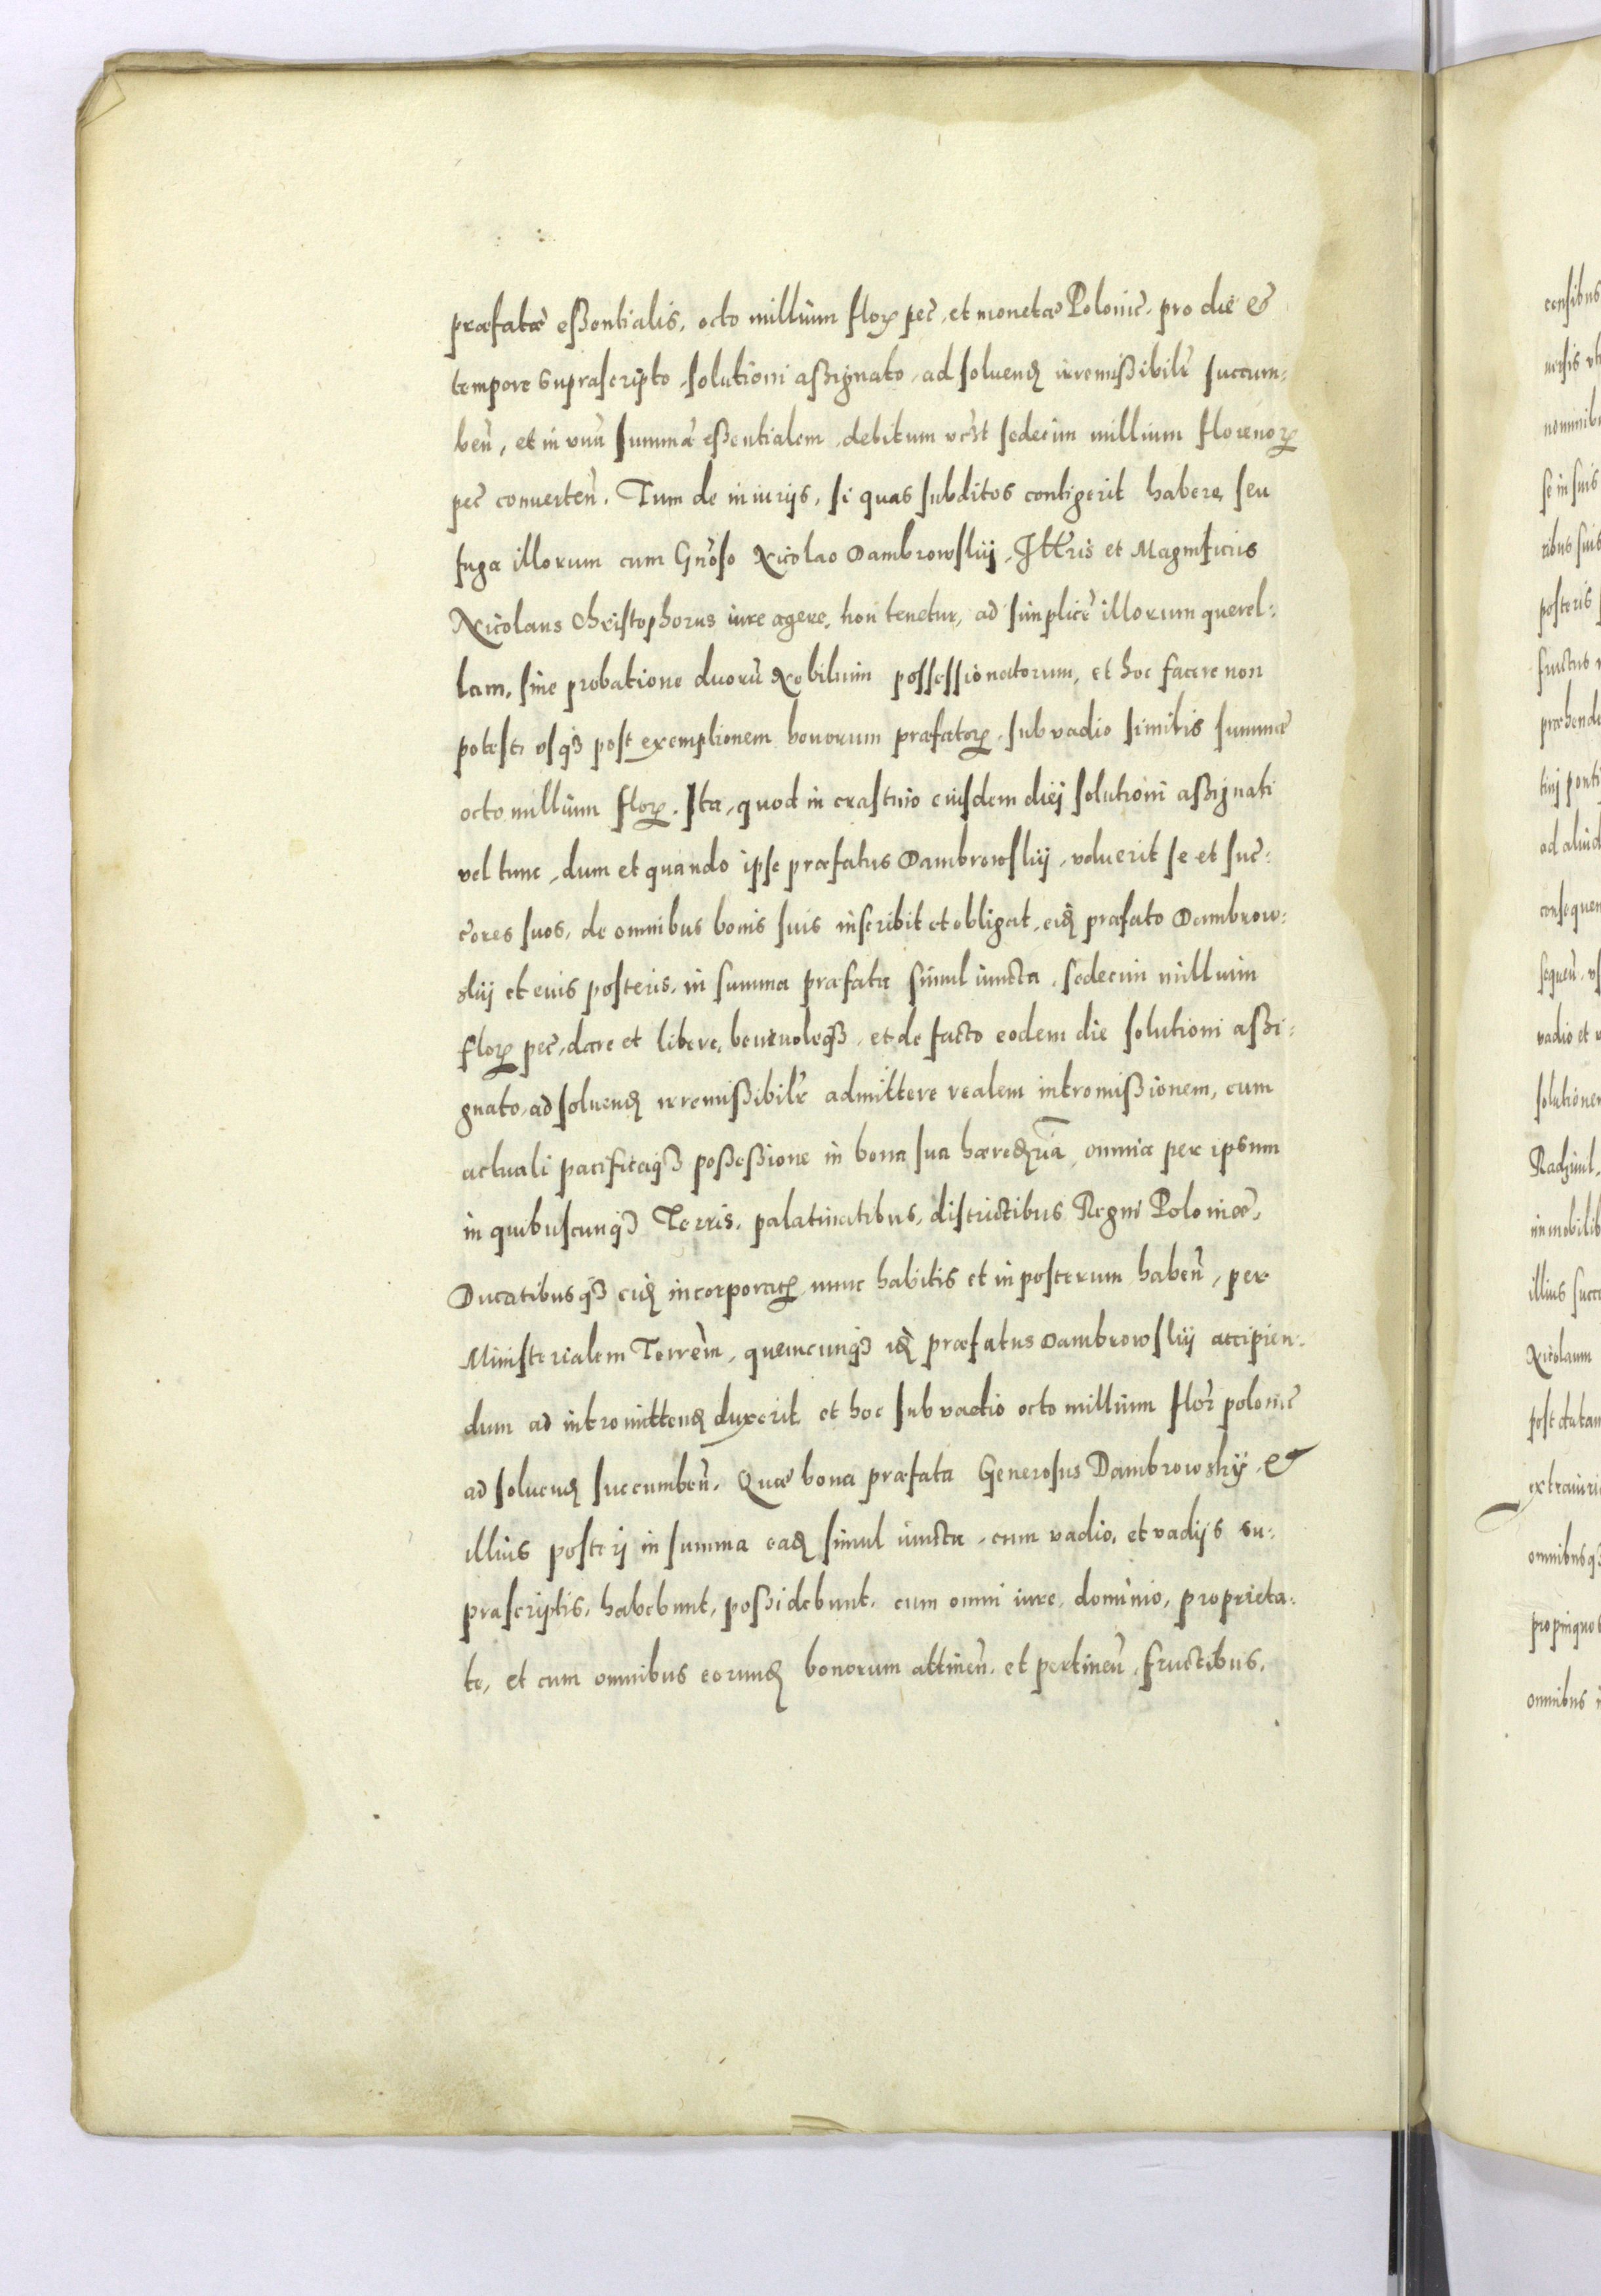 præfatæ eßentialis, octo millium florꝝ pec̃, et monetæ Polonic̃, pro die et
tempore suprascripto, solutioni aßignato, ad soluenđ irremißibilr̃ succum-
ben̄, et in vnū summā eßentialem, debitum vc̃st sedecim millium florenorꝝ
pec̃ conuerten̄. Tum de iniurijs, si quas subditos contigerit habere, seu
fuga illorum cum Gñoso Nicolao Dambrowskij, Illr̃is et Magnificus
Nicolaus Christophorus iure agere, non tenetur, ad simplicē illorum querel-
lam, sine probatione duorū Nobilium possessionatorum, et hoc facere non
potest, vsqꝫ post exemptionem bonorum præfatorꝝ, sub vadio similis summæ
octo millium florꝝ. Ita, quod in crastino eiusdem diej solutioni aßignati
vel tunc, dum et quando ipse præfatus Dambrowskij, voluerit se et suc-
c̃ores suos, de omnibus bonis suis inscribit et obligat, eiđ præfato Dambrow-
skij et eius posteris, in summa præfata simul iuncta, sedecim millium
florꝝ pec̃, dare et libere, beneuoleqꝫ, et de facto eodem die solutioni aßi-
gnato, ad soluenđ irremißibilr̃ admittere realem intromißionem, cum
actuali pacificaqꝫ poßeßione in bona sua hæređria, omnia per ipsum
in quibuscunqꝫ Terris, palatinatibus, districtibus Regni Poloniæ,
Ducatibusqꝫ eiđ incorporatꝝ nunc habitis et in posterum haben̄, per
Ministerialem Terrēm, quemcunqꝫ iđ præfatus Dambrowskij accipien-
dum ad intromittenđ duxerit, et hoc sub vadio octo millium flor̃ polonic̃
ad soluenđ succumben̄. Quæ bona præfata Generosus Dambrowskij, et
illius posterj in summa eađ simul iuncta, cum vadio, et vadijs su-
prascriptis, habebunt, poßidebunt, cum omni iure, dominio, proprieta-
te, et cum omnibus eorunđ bonorum attinen̄, et pertinen̄, fructibus,
censibus
nensis
se in suis
ribus suis
posteris
fructus
tinj
ad aliud
consequen
sequen̄
vadio et
solutionem
Radziuil
immobilib
illius succ
Nicolaum
post
extraiuri
omnibusqꝫ
propinquo
omnibus